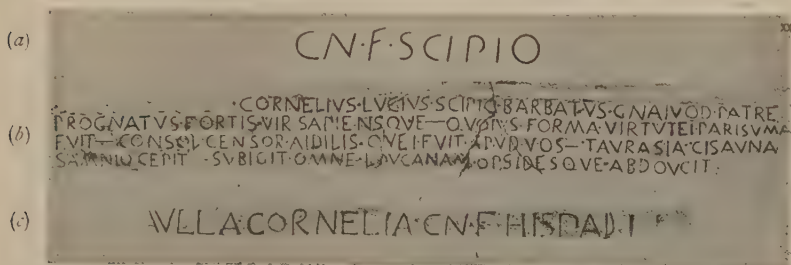 (a) CN·F·SCIPIO
·CORNELIVS·LVCIVS·SCIPIO·BARBATVS·GNAIVOD·PATRE
(b) PROGNATVS·FORTIS·VIR·SAPIENSQVE—QVOIVS·FORMA·VIRTVTEI·PARISVMA
FVIT—CONSOL CENSOR·AIDILIS·QVEI·FVIT·APVD·VOS—TAVRASIA·CISAVNA
SAMNIO·CEPIT·SVBIGIT·OMNE·LOVCANAM·OPSIDESQVE·ABDOVCIT·
(c) AVLLA·CORNELIA·CN·F·HISPALLI